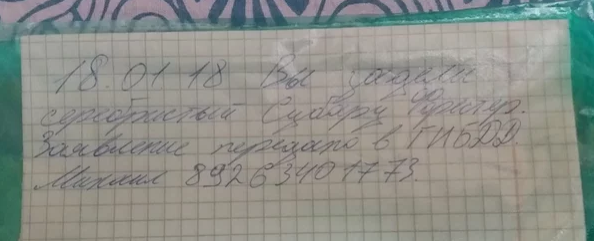 18.01.18 Вы задели
серебристый Субару Форестер.
Заявление передано в ГИБДД.
Михаил 89263401773.